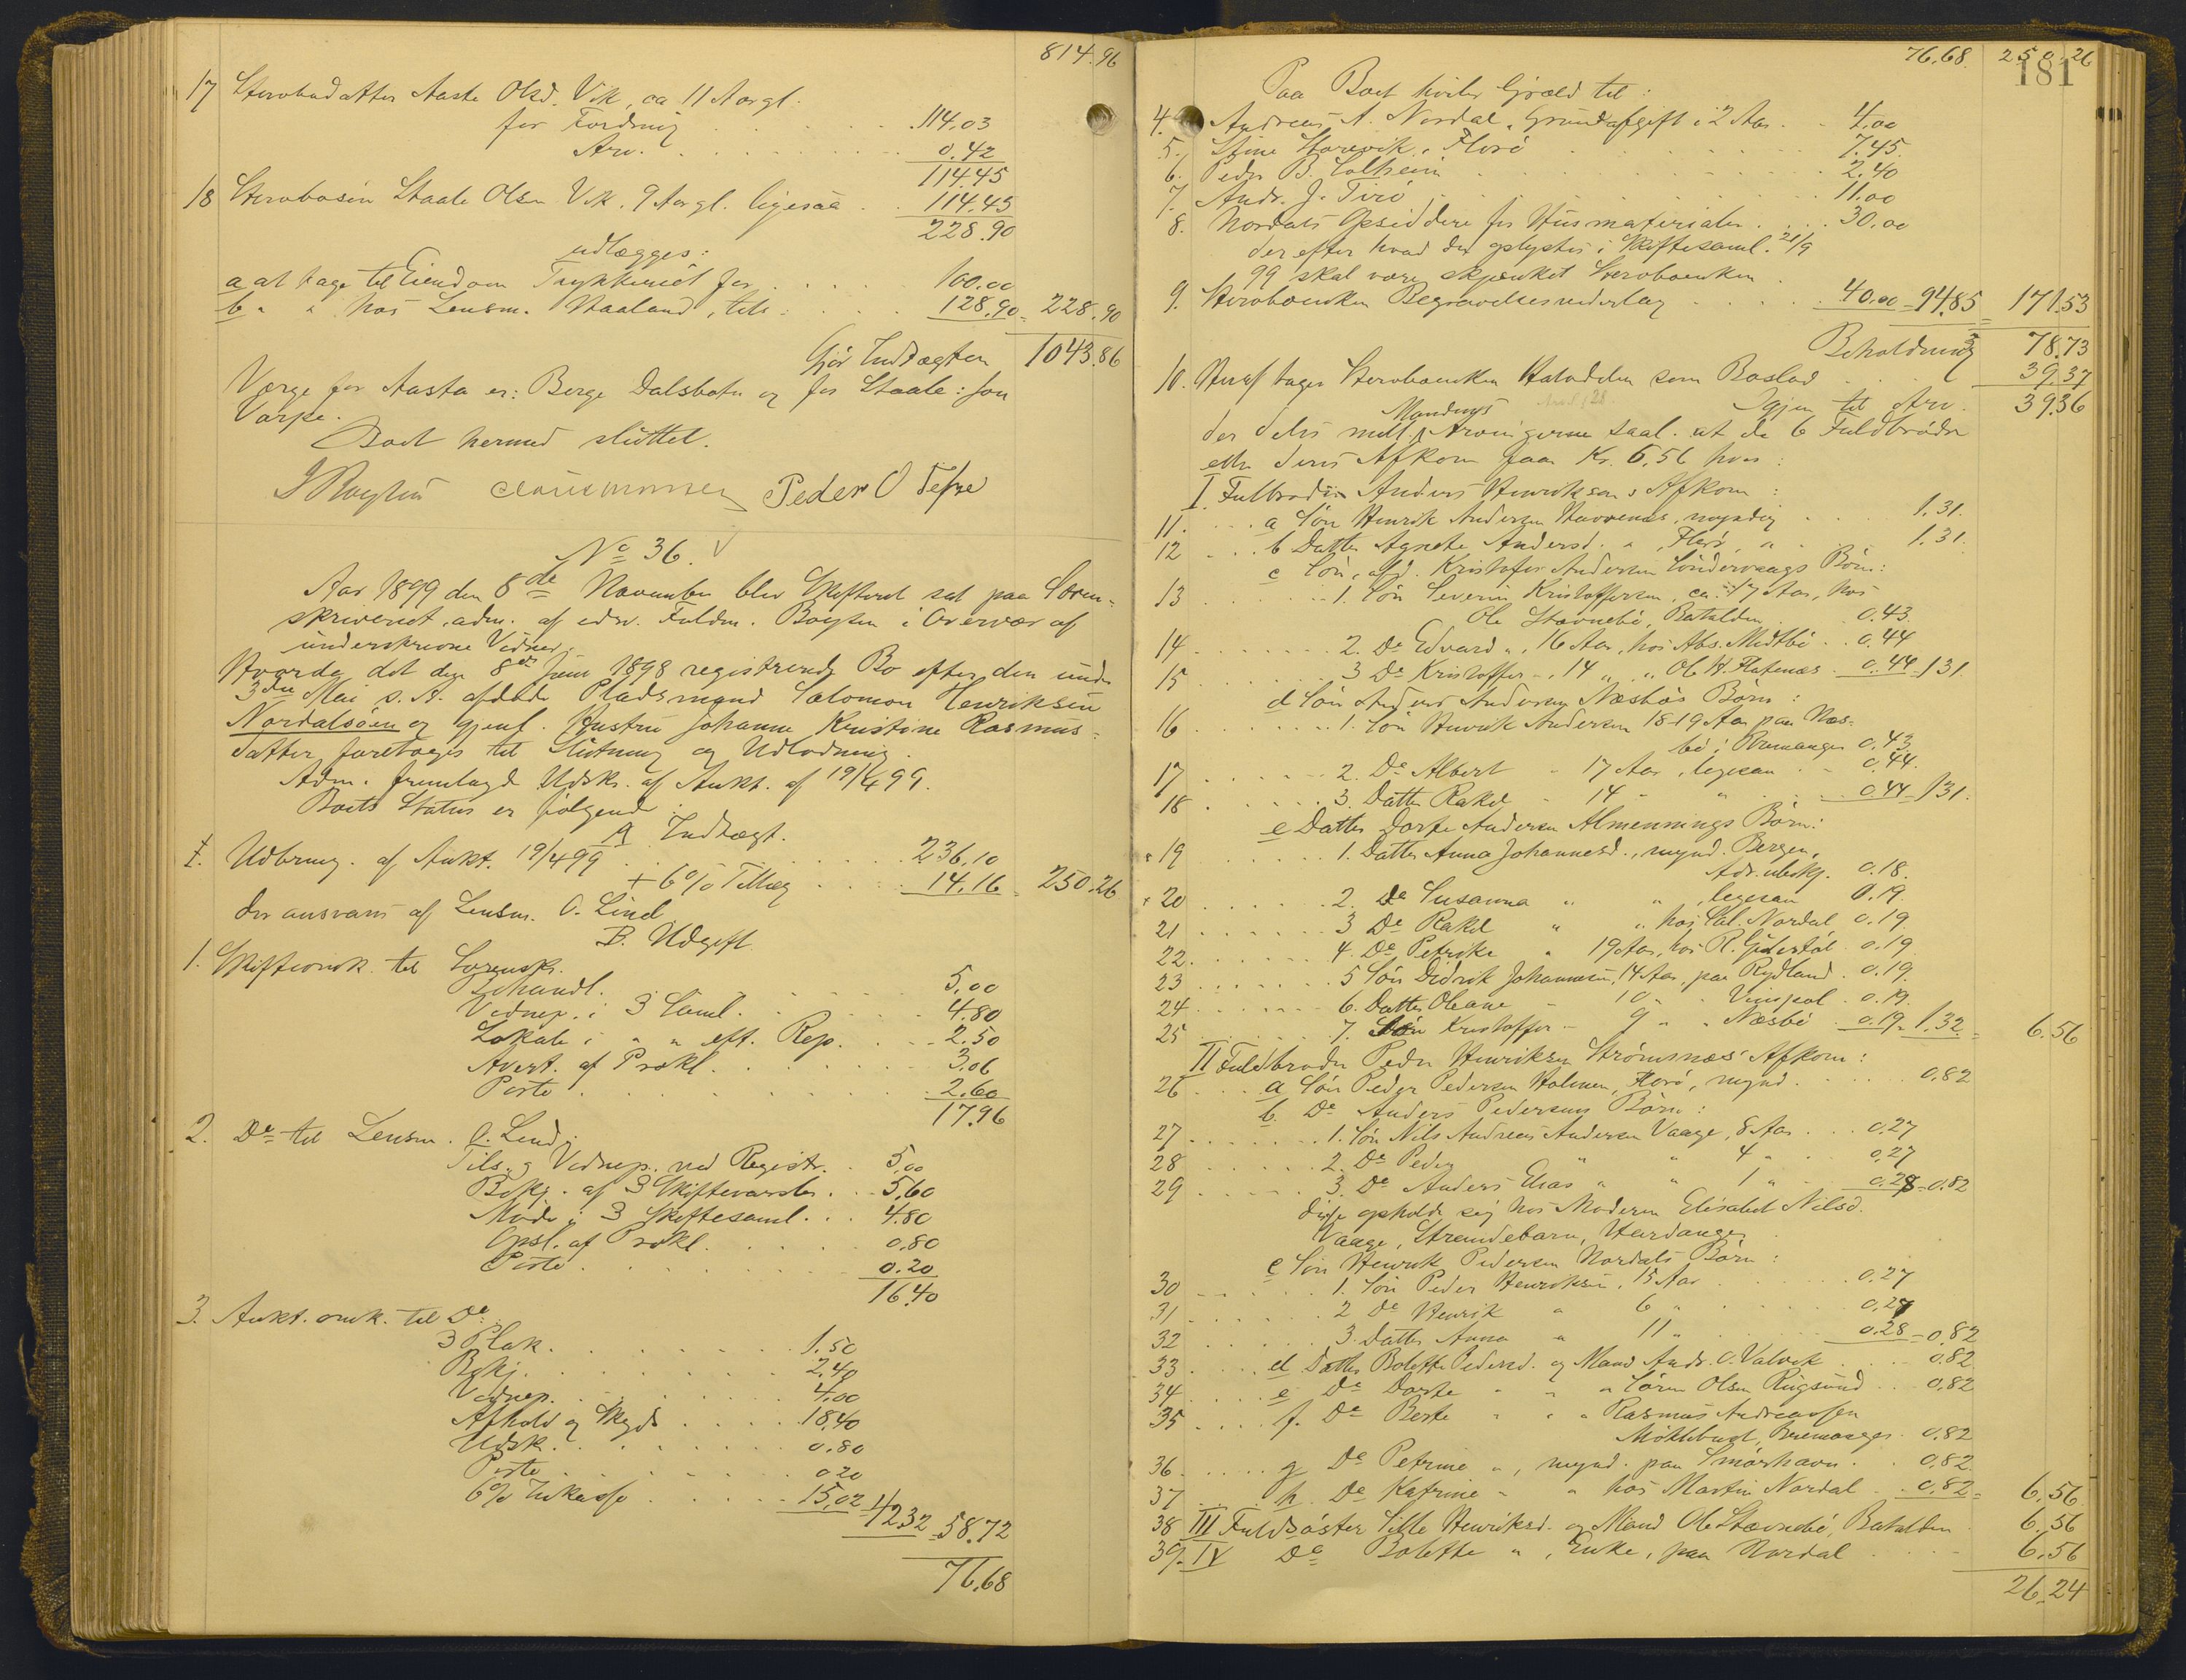 814.96
17 Stervbodatter Aasta Olsd. Vik, ca 11 Aar gl.
for Fordring . . . 114.03
Arv. . . . 0.42
114.45
18 Stervbosøn Staale Olsen Vik. 9 Aar gl. ligesaa . . 114.45
228.90
udlægges:
a at tage til Eiendom Trykkeriet for . . . 100.00
b " " hos Lensm. Haaland, tils. . . . 128.90 = 228.90
Gjør Indtægten 1043.86
Værge for Aasta er: Berge Dalsbotn og for Staale: Jon
Varpe.
Boet hermed sluttet.
Peder O Tefre
No 36.
Aar 1899 den 8de November blev Skifteret sat paa Soren-
skriveriet, adm. af edsv. Fuldm. Bøgsten i Overvær af
underskrevne Vidner.
Hvorda det den 8de Juni 1898 registrerede Bo efter den under
3die Mai s. A. afdøde Pladsmand Salomon Henriksen
Nordalsøen og gjenl. Hustru Johanne Kristine Rasmus-
datter foretoges til Slutning og Udlodning.
Adm. fremlagde Udskr. af Aukt. af 19/4 99.
Boets Status er følgende:
A Indtægt.
1. Udbring. af Aukt. 19/4 99 . . . 236.10
+ 6% Tillæg . . . 14.16 = 250.26
der ansvares af Lensm. O. Lind
B. Udgift.
1. Skifteomk. til Sorenskr.
Behandl. . . . 5.00
Vidnep. i 3 Saml. . . . 4.80
Lokale i " " eft. Rep. . . . 2.50
Avert. af Prokl. . . . 3.06
Porto . . . 2.60
17.96
2. Do til Lensm. O. Lind:
Tils. og Vidnep. ved Registr. . . 5.00
Bekj. af 3 Skiftevarsler . . . 5.60
Møde i 3 Skiftesaml. . . . 4.80
Opsl. af Prokl. . . . 0.80
Porto . . . 0.20
16.40
3. Aukt. omk. til Do:
3 Plak. . . . 1.50
Bekj. . . . 2.40
Vidnep. . . . 4.00
Afhold og Skyds . . . 18.40
Udsk. . . . 0.80
Porto . . . 0.20
6% Inkasso . . . 15.02 = 42.32 = 58.72
76.68
76.68 250.26
181
Paa Boet hviler Gjæld til:
4. Andreas A. Nordal, Grundafgift i 2 Aar . . 4.00
5. Stine Storevik, Florø . . . 7.45
6. Peder B. Solheim . . . 2.40
7. Andr. J. Tirø . . . 11.00
8. Nordals Opsiddere for Husmaterialer . . . 30.00
der efter hvad der oplystes i Skiftesaml. 21/9
99 skal være skjænket Stervboenken
9. Stervboenken Begravelsesudlæg . . . 40.00 = 94.85 = 171.53
Beholdning 78.73
10. Heraf tager Stervboenken Halvdelen som Boslod . . . 39.37
Igjen til Arv. 39.36
der deles mell. Mandens Arvingerne saal. at de 6 Fuldbrødre
eller deres Afkom faar Kr. 6,56 hver:
I Fulbroder Anders Henriksens Afkom:
11. . . . a Søn Henrik Andersen Havrenes, myndig . . . 1.31.
12 . . . b Datter Agnete Andersd. " , Florø, " . . . 1.31.
c Søn, afd. Kristofer Andersen Søndervaags Børn:
13 . . . 1. Søn Severin Kristoffersen, ca. 17 Aar, hos
Ole Stavnebø, Batalden . 0.43.
14 . . . 2. Do Edvard ", 16 Aar, hos Abs. Midtbø . . 0.44
15 . . . 3 Do Kristoffer - , 14 " " Ol. H. Flatenæs . 0.44 = 1.31.
d Søn Anders Andersen Næsbøs Børn:
16 . . . 1. Søn Henrik Andersen 18-19 Aar paa Næs-
bø i Bremanger 0.43.
17 . . . 2. Do Albert " 17 Aar, ligesaa . . 0.44.
18 . . . 3. Datter Rakel - 14 - " . . 0.44 = 1.31.
e Datter Dorte Andersen Almennings Børn:
19 . . . 1. Datter Anna Johannesd., mynd. Bergen,
Adr. ubekj. 0.18.
20 . . . 2. Do Susanna " " , ligesaa 0.19.
21 . . . 3 Do Rakel " " hos Sal. Nordal 0.19
22. . . . 4. Do Petrike " 19 Aar, hos R. Gjelestøl . 0.19
23 . . . 5 Søn Didrik Johannesen, 14 Aar, paa Rydland . 0.19
24 . . . 6. Datter Oleane - 10 " . Vinspol . 0.19.
25 . . . 7. Søn Kristoffer - 9 " . Næsbø . 0.19 = 1.32 = 6.56
II Fuldbroder Peder Henriksen Strømsnæs' Afkom:
26 . . . a Søn Peder Pedersen Holmen, Florø, mynd. . . . 0.82
b. Do Anders Pedersens Børn:
27 . . . 1. Søn Nils Andreas Andersen Vaage, 8 Aar . . . 0.27
28 . . . 2. Do Peder " " 4 " . . 0.27
29 . . . 3. Do Anders Elias " " 1 " . . 0.28 = 0.82
disse opholde sig hos Moderen Elisabet Nilsd.
Vaage, Strandebarm, Hardanger.
c Søn Henrik Pedersen Nordals Børn:
30 . . . 1. Søn Peder Henriksen, 15 Aar . . . 0.27
31 . . . 2 Do Henrik " 6 " . . . 0.27
32 . . . 3. Datter Anna " 11 " . . . 0.28 = 0.82
33 . . . d Datter Bolette Pedersd. og Mand Andr. O. Valvik . . 0.82
34 . . . e Do Dorte " " " Søren Olsen Rugsund . . 0.82
35 . . . f. Do Berte " " " Rasmus Andreassen
Møkkebust, Bremanger . 0.82
36 . . . g Do Petrine ", mynd. paa Smørhavn . . 0.82.
37 . . . h. Do Katrine " " hos Martin Nordal . . 0.82 = 6.56
38 III Fuldsøster Sille Henriksd. og Mand Ole Stavnebø, Batalden . 6.56
39. IV Do Bolette " , Enke, paa Nordal . . . 6.56
26.24